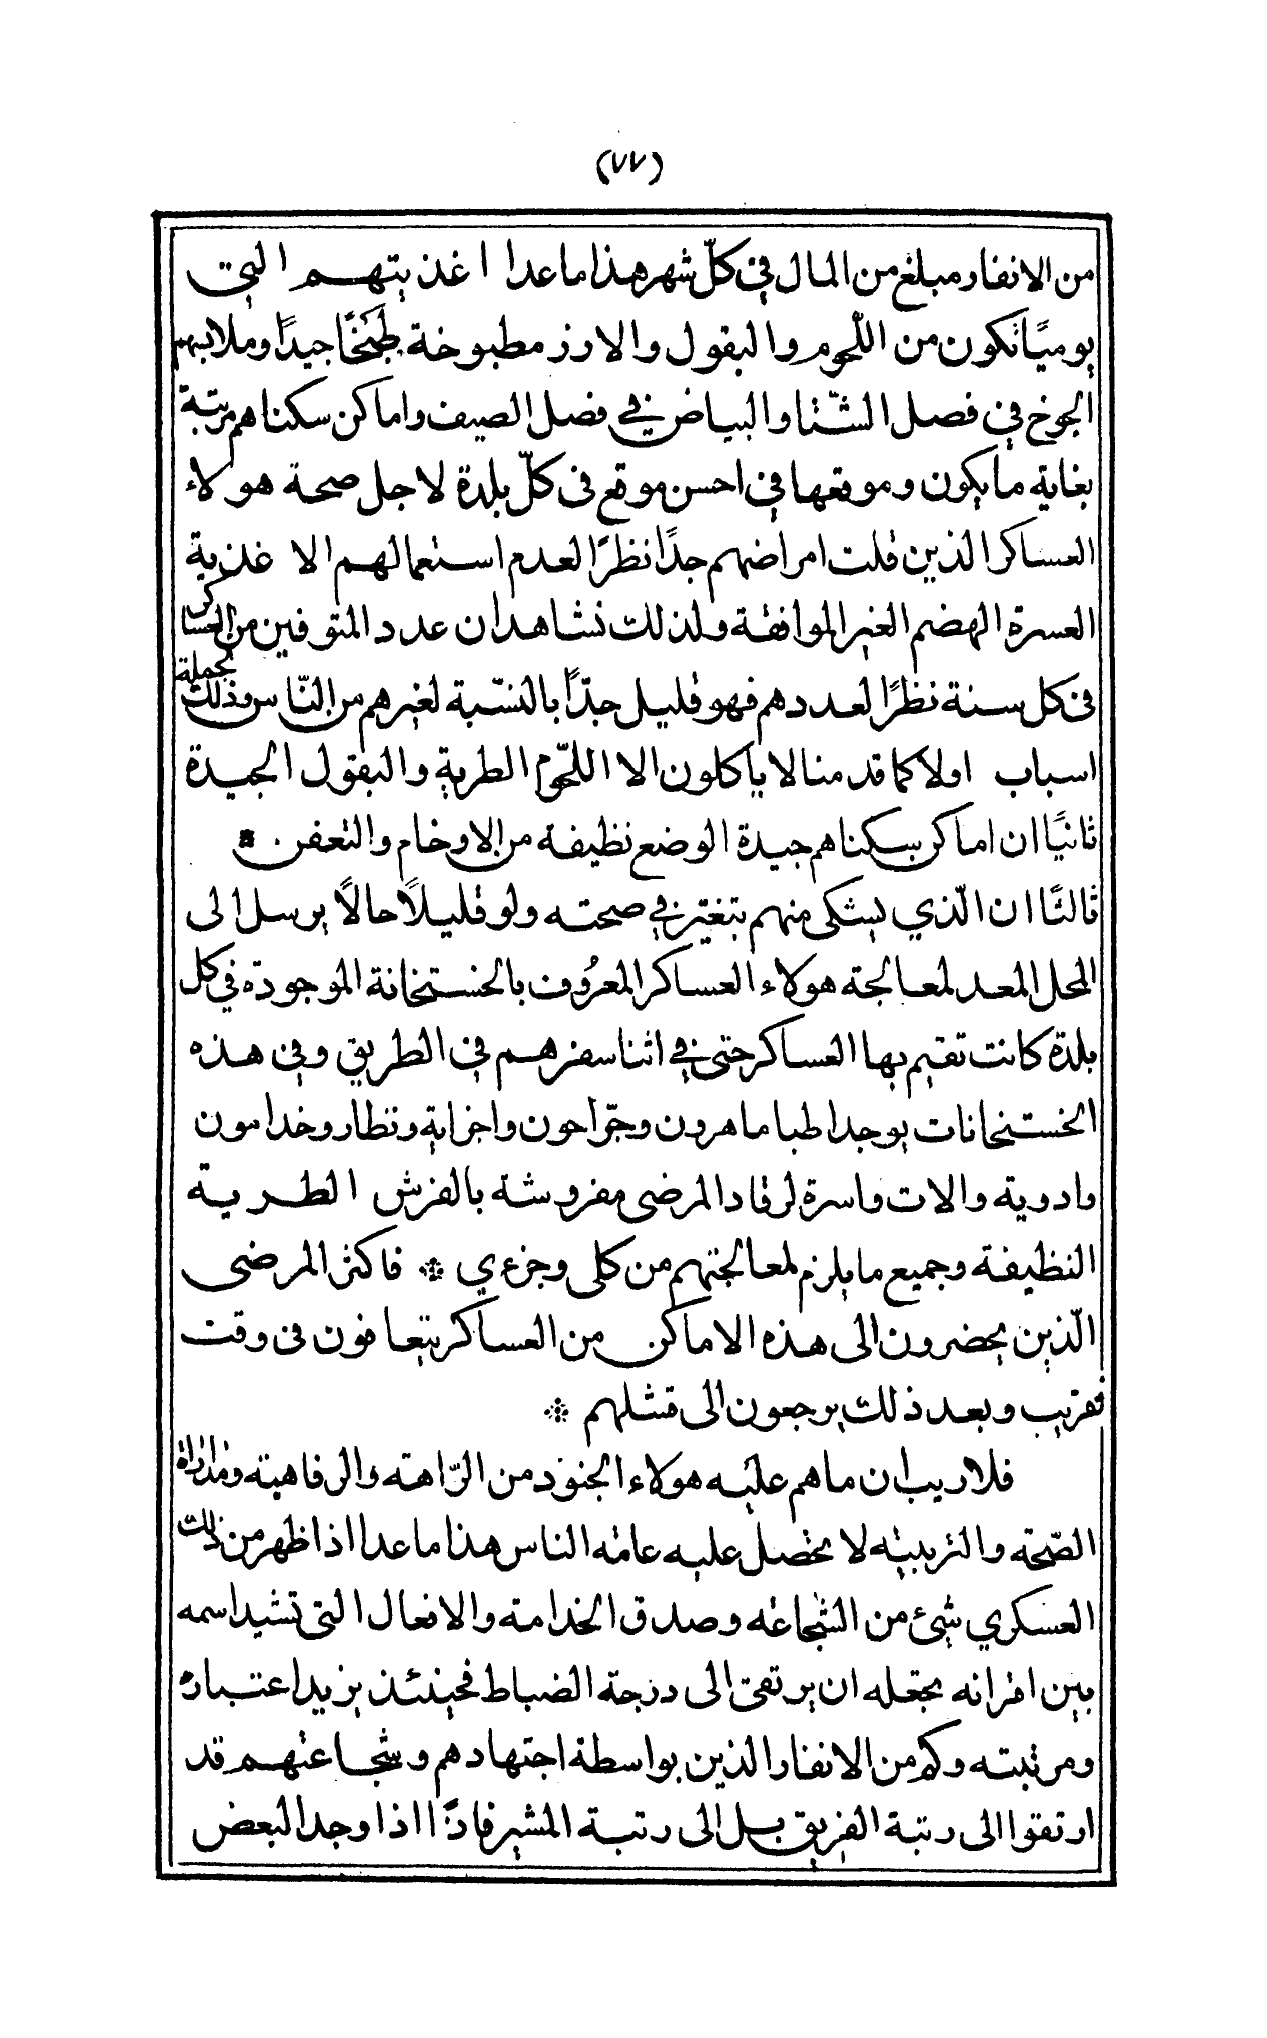 (٧٧)
من الانفار مبلغ من المال في كلّ شهر هذا ماعدا اغذيتهم التي
يوميًا تكون من اللّحوم والبقول والارز مطبوخة طبخًا جيدًا وملابسهم
الجوخ في فصل الشّتا والبياض في فصل الصيف واماكن سكناهم مرتبة
بغاية مايكون وموقعها في احسن موقع فى كلّ بلدة لاجل صحة هولاء
العساكر الذين قلت امراضهم جدًا نظرًا لعدم استعمالهم الاغذية
العسرة الهضم الغير الموافقة ولذلك نشاهد ان عدد المتوفين من العساكر
فى كل سنة نظرًا لعددهم فهو قليل جدًّا بالنسّبة لغيرهم من النّاس وذلك بجملة
اسباب اولا كما قدمنا لا ياكلون الا اللحّوم الطرية والبقول الجيدة
ثانيًا ان اماكن سكناهم جيدة الوضع نظيفة من الاوخام والتعفن .
ثالثًا ان الّذي يشكى منهم بتغير في صحته ولو قليلاً حالاً يرسل الى
المحل المعد لمعالجة هولاء العساكر المعرُوف بالخستخانة الموجودة في كل
بلدة كانت تقيم بها العساكر حتى في اثنا سفرهم في الطريق وفي هذه
الخستخانات يوجد اطبا ماهرون وجرّاحون واجزاية ونظار وخدامون
وادوية والات واسرة لرقاد المرضى مفروشة بالفرش الطرية
النظيفة وجميع مايلزم لمعالجتهم من كلى وجزءي ❊ فاكثر المرضى
الّذين يحضرون الى هذه الاماكن من العساكر يتعافون فى وقت
قريب وبعد ذلك يرجعون الى قشلهم ❊
فلاريب ان ماهم عليه هولاء الجنود من الرّاحة والرفاهية ومداراة
الصّحة والتربية لا يحصل عليه عامة الناس هذا ماعدا اذا ظهر من ذلك
العسكري شيء من الشجاعة وصدق الخدامة والافعال التى تشيد اسمه
بين اقرانه يجعله ان يرتقى الى درجة الضباط فحينئذ يزيد اعتباره
ومرتبته وكم من الانفار الذين بواسطة اجتهادهم وشجاعتهم قد
ارتقوا الى رتبة الفريق بل الى رتبة المشير فاذًا اذا وجد البعض